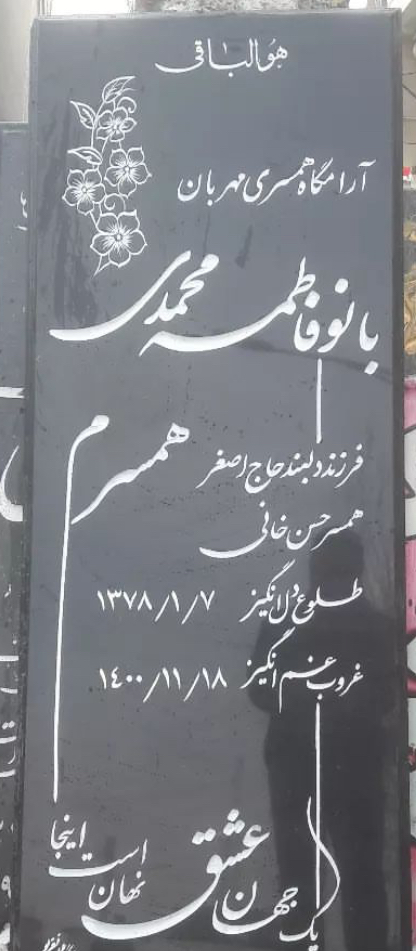 هوالباقی
آرامگاه همسری مهربان
بانو فاطمه محمدی
فرزند دلبند حاج اصغر
همسرم
همسر حسن خانی
طلوع دل انگیز ۱۳۷۸/۱/۷
غروب غم انگیز ۱٤۰۰/۱۱/۱۸
یک جهان عشق
نهان است اینجا